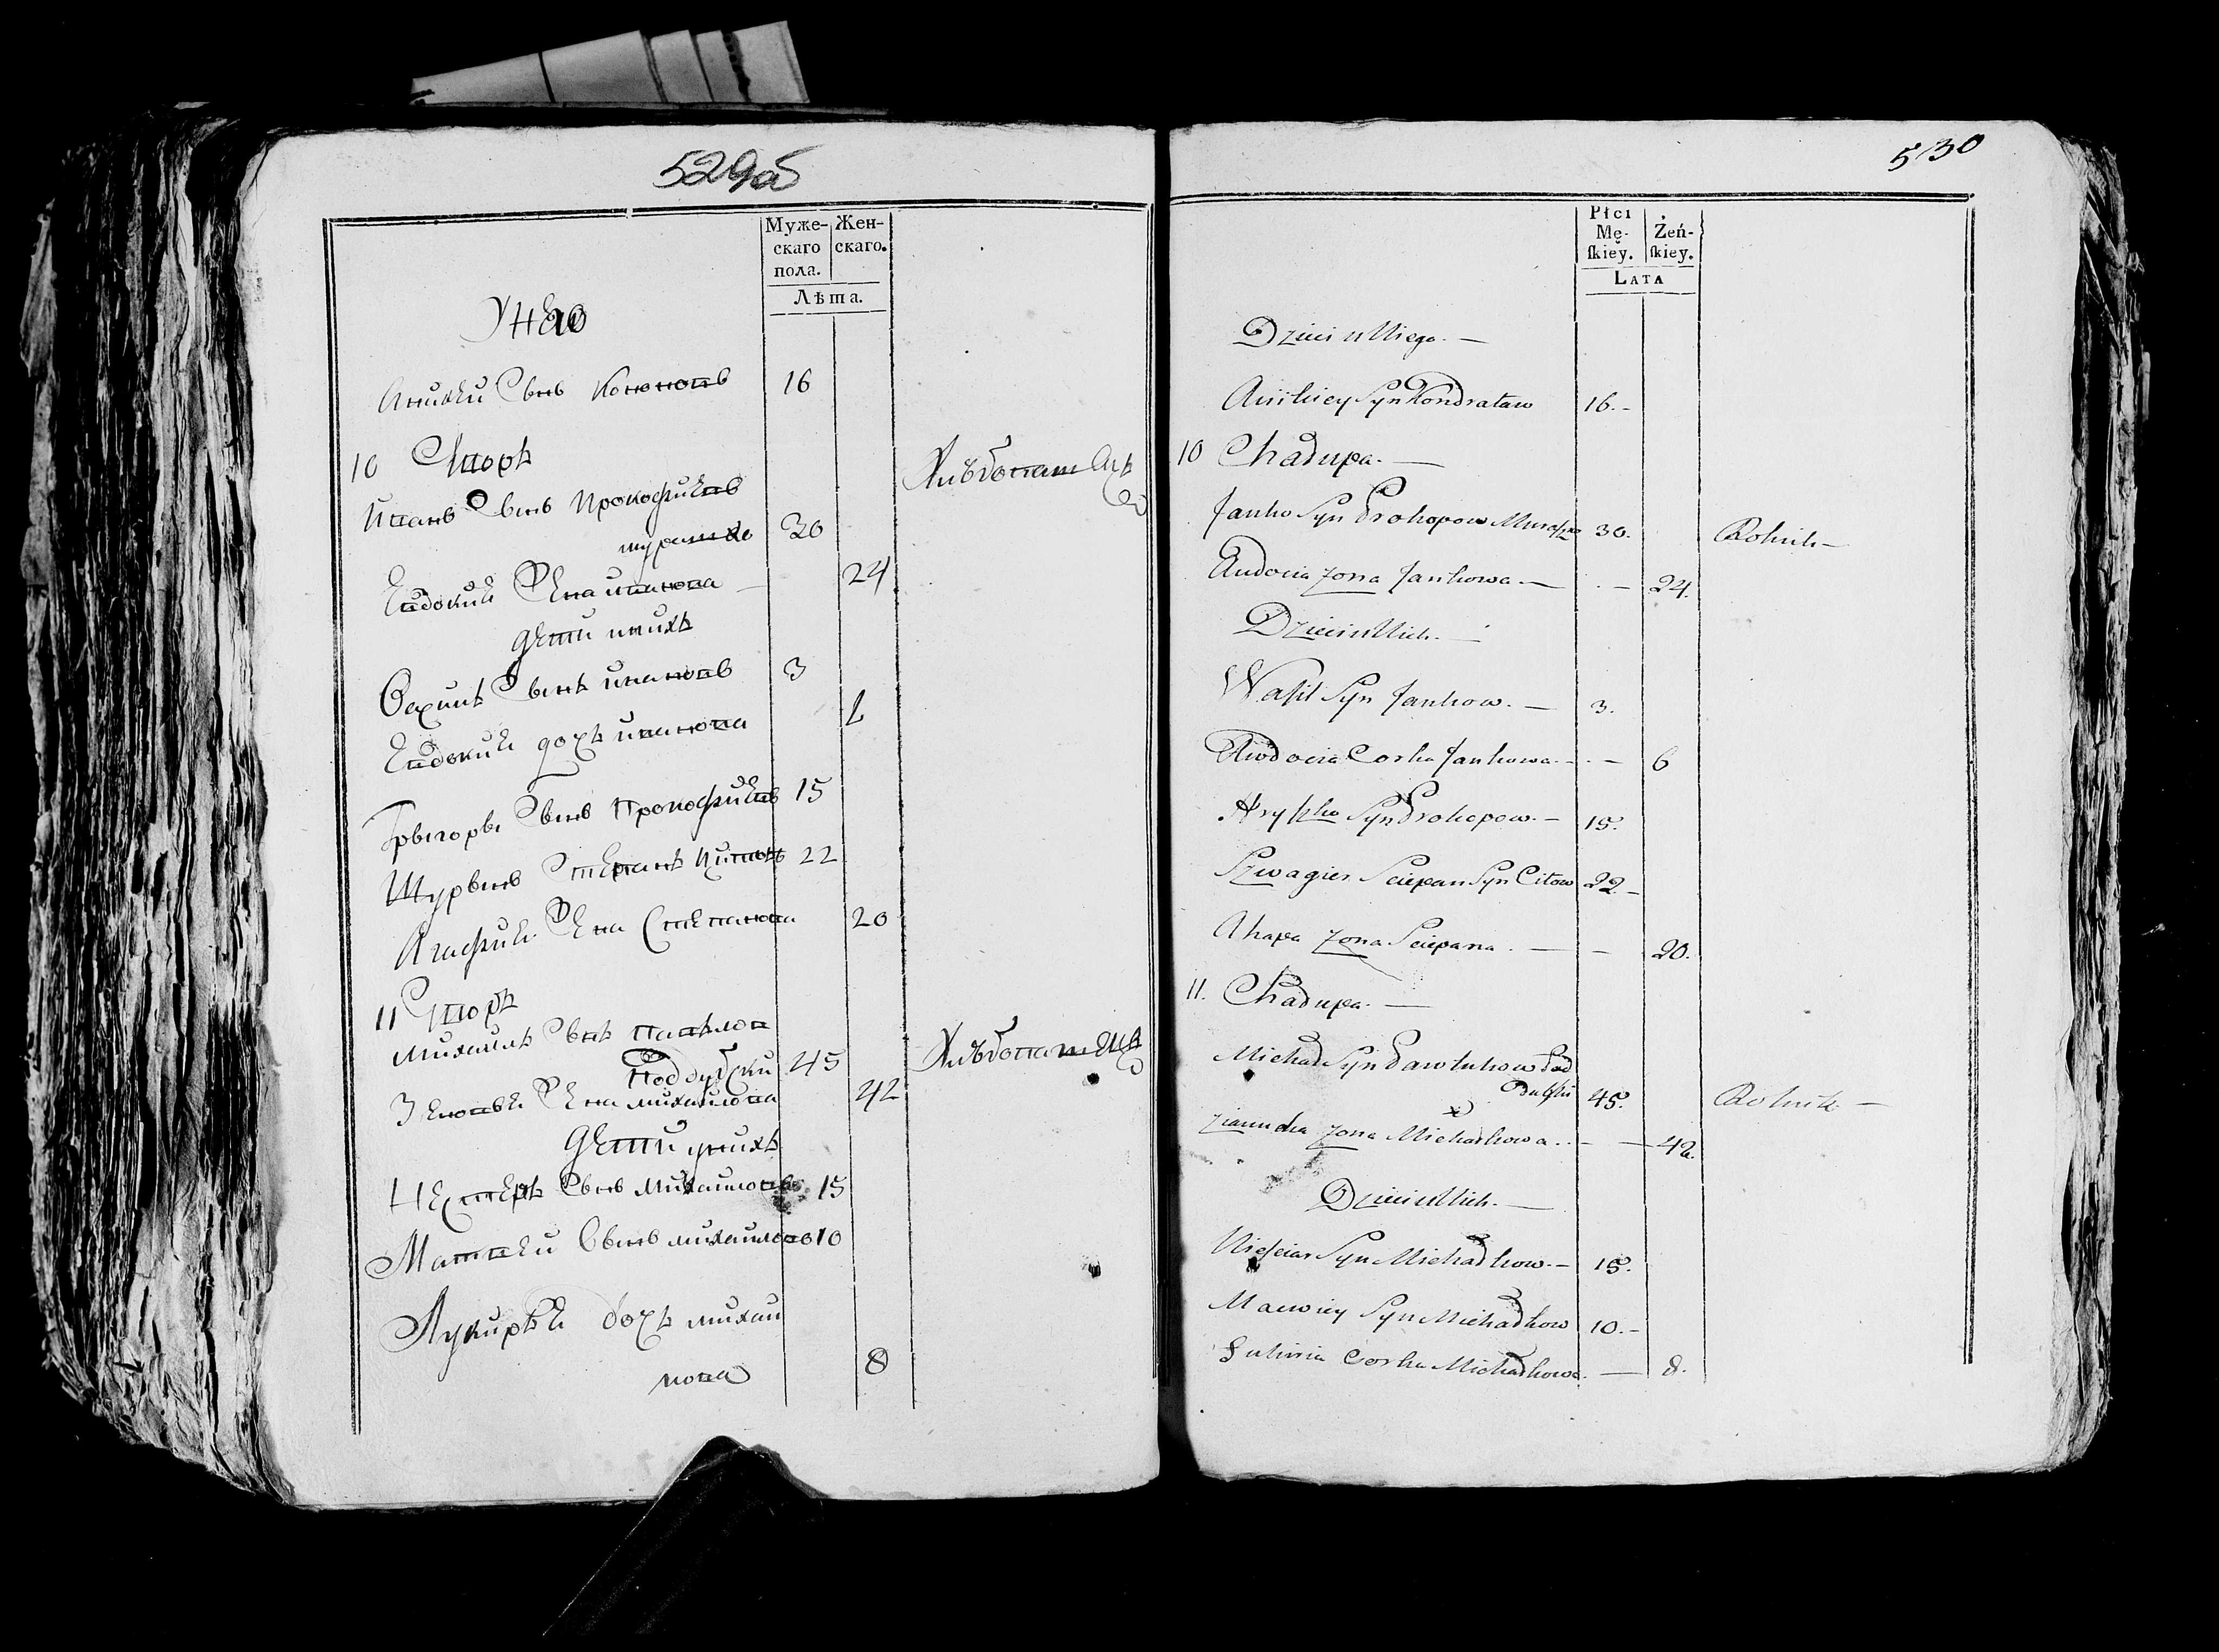 529об
Муже-
скаго
пола.
Жен-
скаго.
Лѣта.
У него
Аникей Сынъ 16
10 Дворъ
Иванъ Сынъ Прокофиевъ Хлѣбопашецъ
30
Евдокия Жена иванова 24
дети у нихъ
Сынъ ивановъ 3
Евдокия дочь иванова
Грыгоры Сынъ Прокофиевъ 15
Шурынъ Степанъ Цитовъ 22
Агафия Жена Степанова 20
11 Дворъ
Михаилъ Сынъ павлов Хлѣбопашецъ
Поддубски 45
Зеновея Жена михайлова 42
дети у нихъ
Нестеръ Сынъ михаиловъ 15
Матвей Сынъ михаилово 10
Лукиръя дочь михаи
лова 8
530
Płci
Mę-
ſkieÿ.
Żeń-
ſkiey.
LATA
Dzieci u Niego. —
Anikiey Syn Kondratow 16.-
10 Chałupa. —
Janko Syn Prokopow 30. Rolnik —
Audocia Zona Jankowa. — 24.
Dzieci u Nich. —
Waſil Syn Jankow. — 3.
Awdocia Corka Jankowa. — 6
Hryſzko Syn Prokopow. — 15.
Szwagier Sciepan Syn Citow 22.-
Ahapa Zona Sciepana. — 20.
11. Chałupa. —
Michał Syn Pawlukow Pod
Dubſki 45. Rolnik —
Zona Michałkowa. — 42.
Dzieci u Nich. —
Nieſcier Syn Michałkow. — 15.
Maciwiey Syn Michałkow 10.-
Corka Michałkowa. — 8.